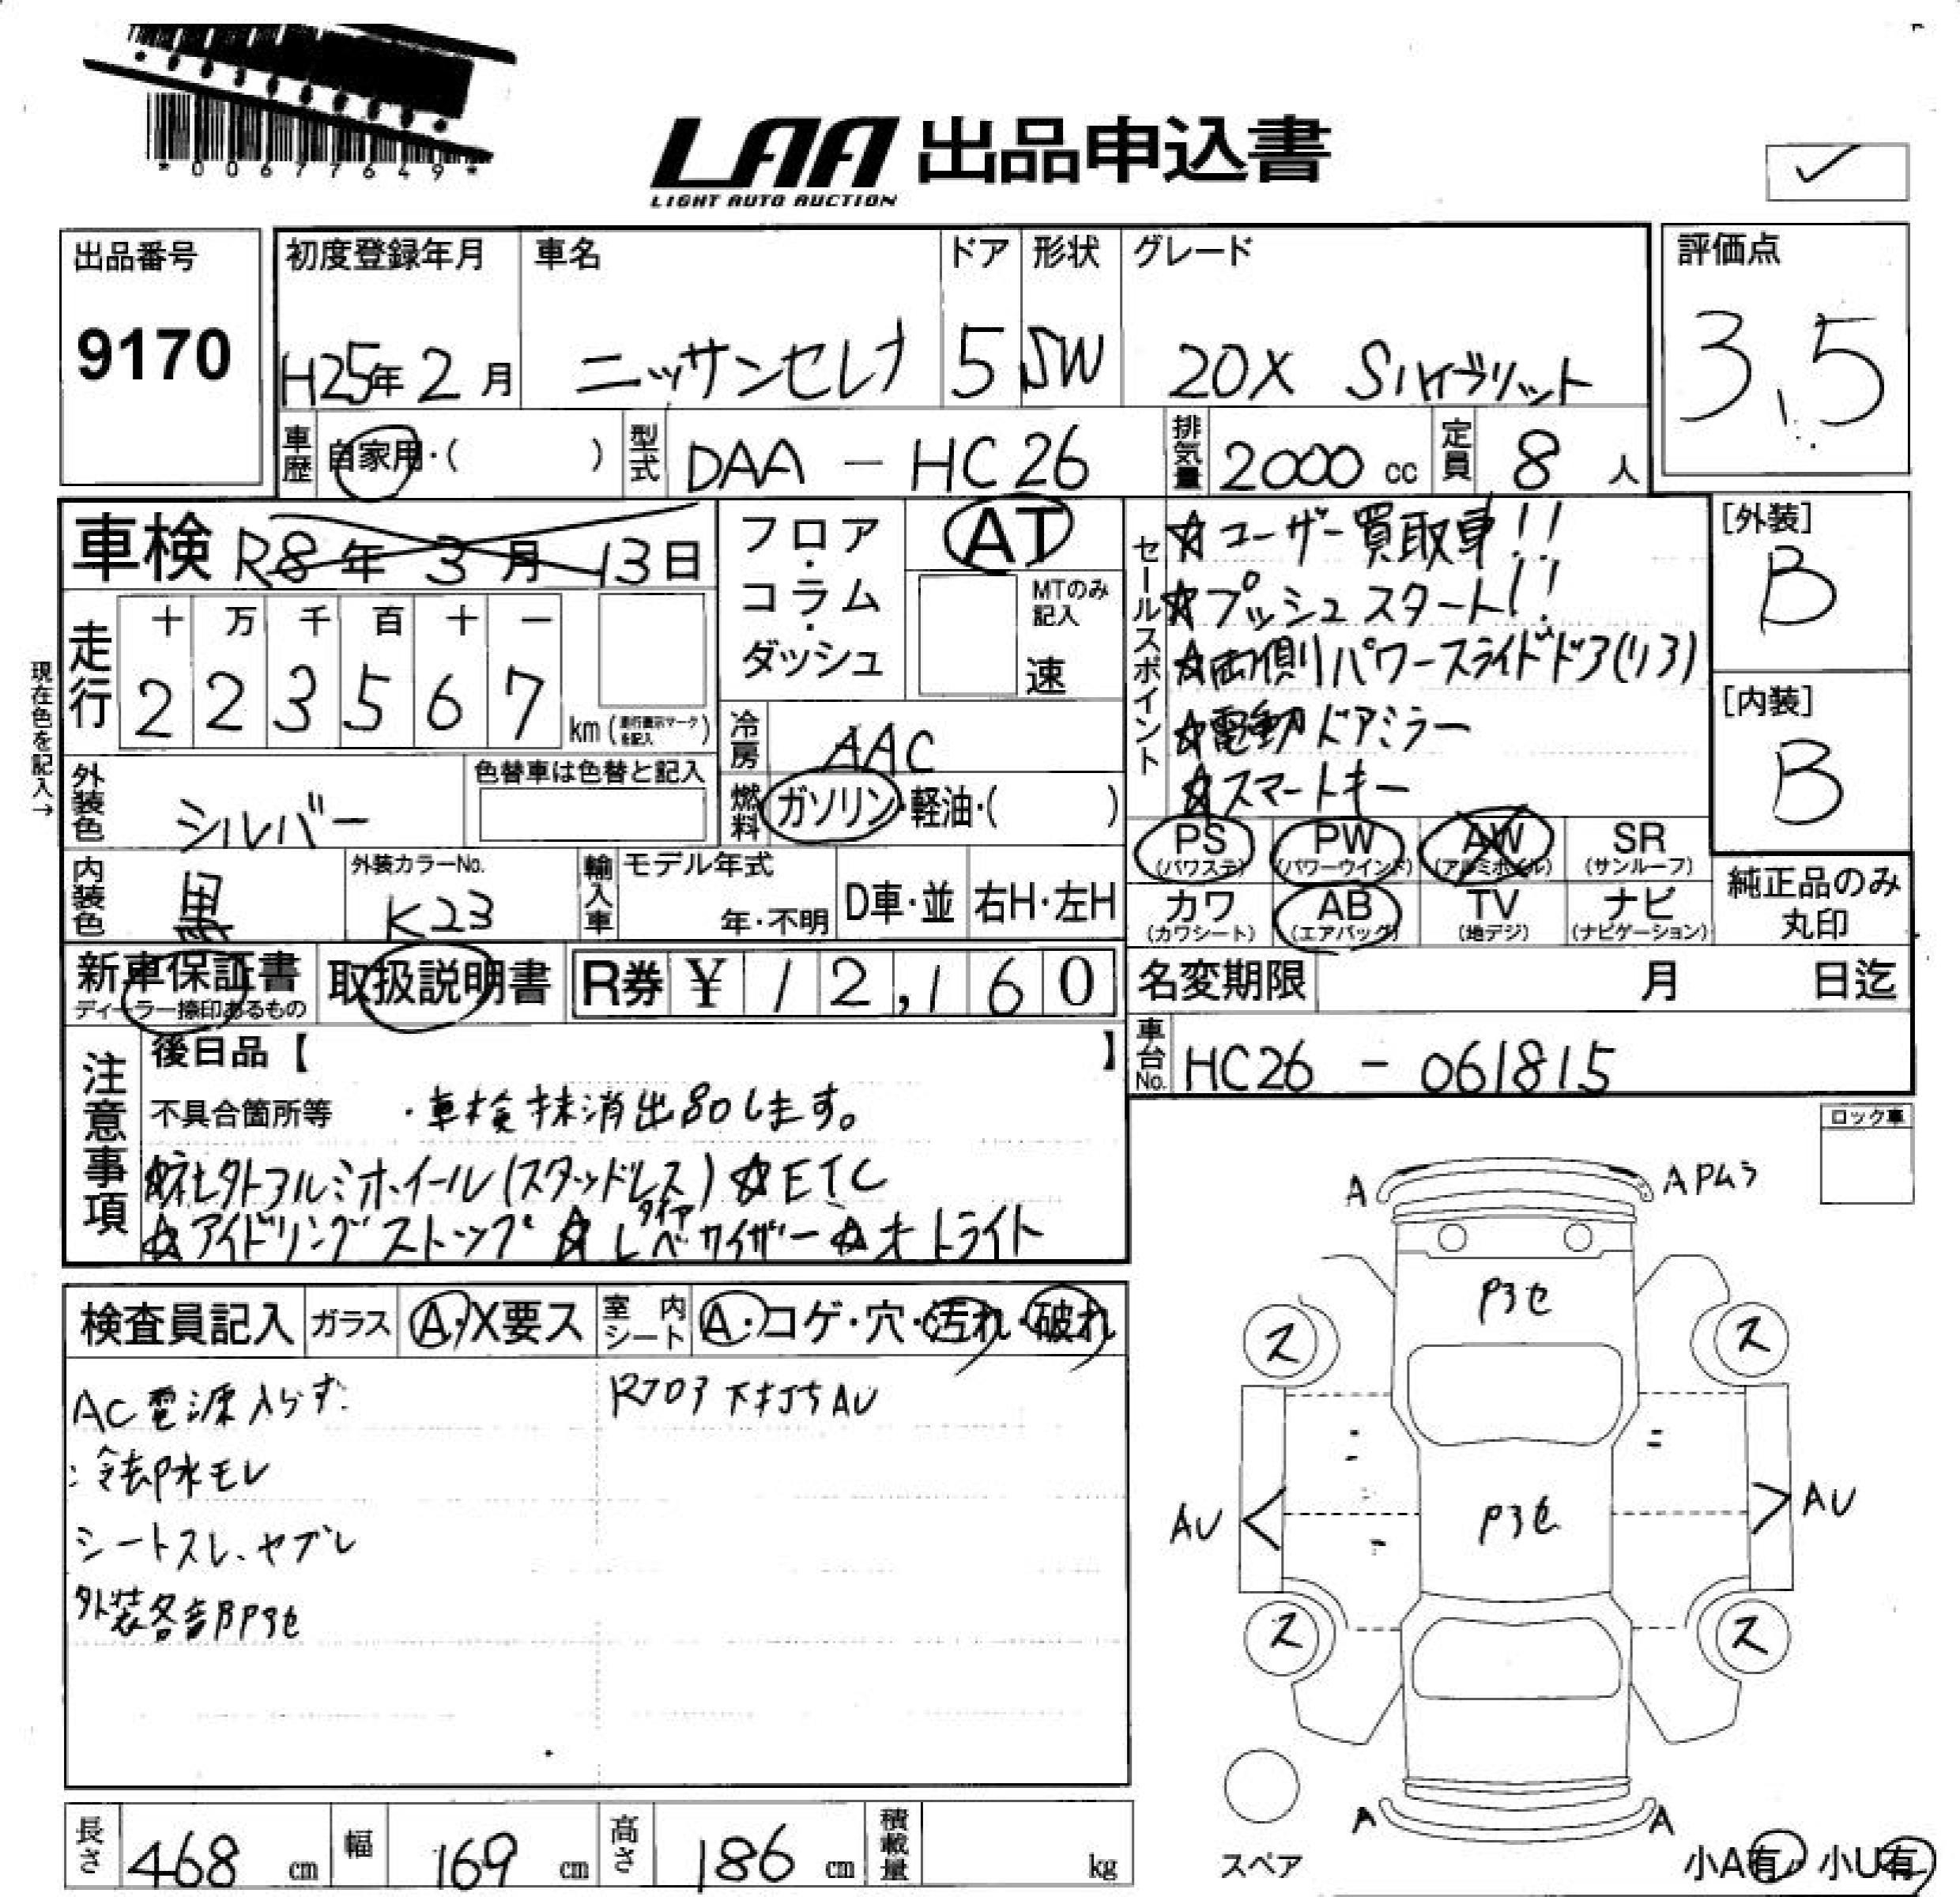 *00677649*
LAA 出品申込書
LIGHT AUTO AUCTION
出品番号
9170
初度登録年月
H25年2月
車名
ニッサンセレナ
ドア
5
形状
SW
グレード
20X Sハイブリット
評価点
3.5
車歴
自家用・( )
型式
DAA-HC26
排気量
2000cc
定員
8人
車検 R8年3月13日
フロア・コラム・ダッシュ
AT
MTのみ記入
速
セールスポイント
☆ユーザー買取車!!
☆プッシュスタート!!
☆両側パワースライドドア(リア)
☆電動ドアミラー
☆スマートキー
[外装]
B
[内装]
B
現在色を記入→
走行
十 万 千 百 十 一
2 2 3 5 6 7
km (走行表示マークを記入)
冷房
AAC
外装色
シルバー
色替車は色替と記入
燃料
ガソリン・軽油・( )
PS (パワステ)
PW (パワーウインド)
AW (アルミホイル)
SR (サンルーフ)
内装色
黒
外装カラーNo.
K23
輸入車
モデル年式
年・不明
D車・並
右H・左H
カワ (カワシート)
AB (エアバッグ)
TV (地デジ)
ナビ (ナビゲーション)
純正品のみ丸印
新車保証書
ディーラー捺印あるもの
取扱説明書
R券 ¥12,160
名変期限 月 日迄
車台No.
HC26-061815
注意事項
後日品【 】
不具合箇所等 ・車検抹消出品します。
☆社外アルミホイール(スタッドレスタイヤ) ☆ETC
☆アイドリングストップ ☆レベライザー ☆オートライト
ロック車
検査員記入
ガラス
A・X要ス
室内シート
A・コゲ・穴・汚れ・破れ
AC電源入らず
冷却水モレ
シートスレ、ヤブレ
外装各部アセ
下打ち AU
A
Aアムラ
アセ
ス
ス
AU
アセ
AU
ス
ス
A
A
スペア
小A有 小U有
長さ
468cm
幅
169cm
高さ
186cm
積載量
kg